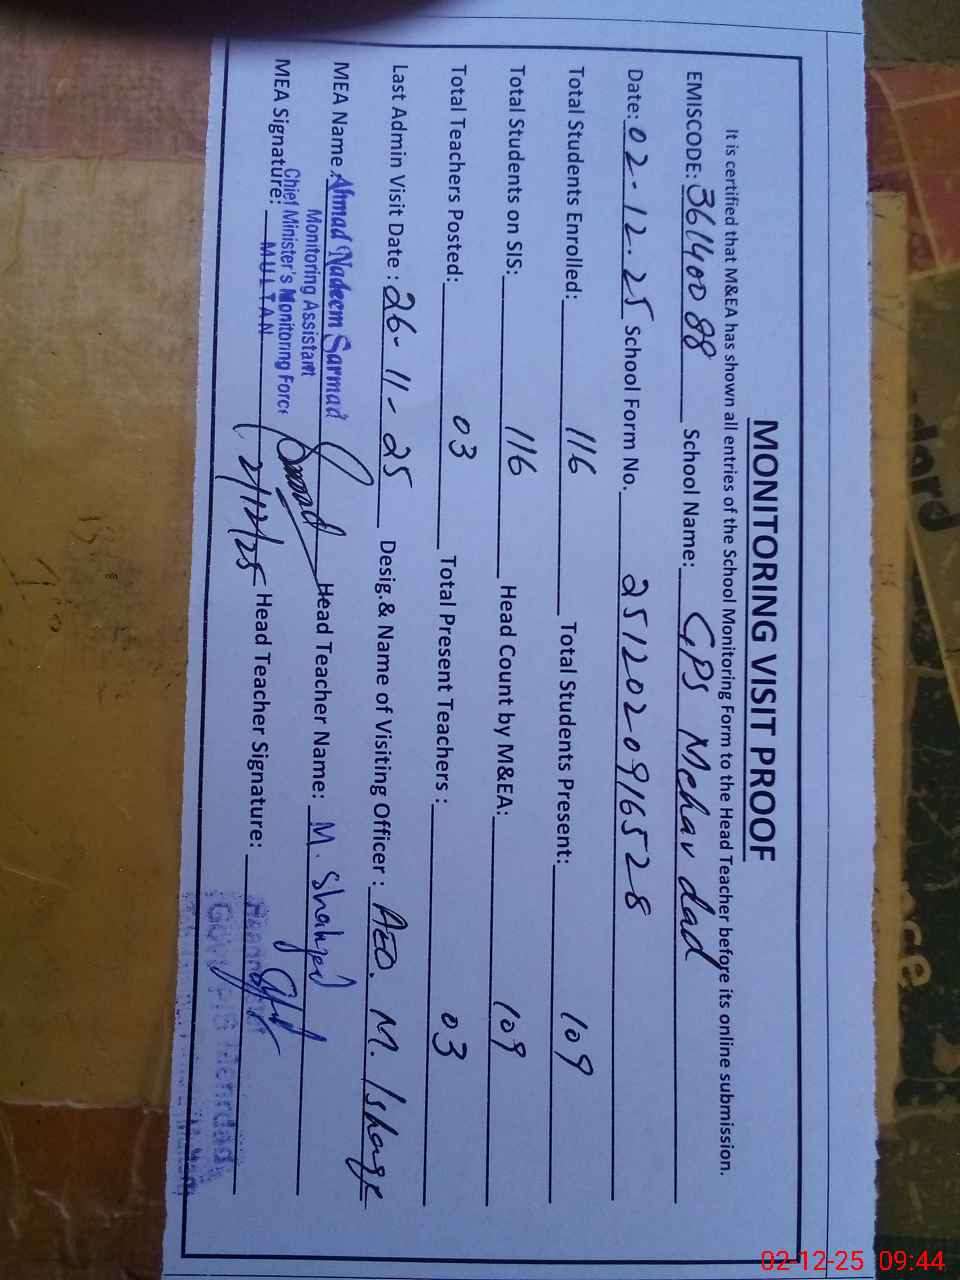 MONITORING VISIT PROOF
It is certified that M&EA has shown all entries of the School Monitoring Form to the Head Teacher before its online submission.
EMISCODE: 36140088 School Name: GPS Mehar dad
Date: 02.12.25 School Form No. 2512020916528
Total Students Enrolled: 116 Total Students Present: 109
Total Students on SIS: 116 Head Count by M&EA: 109
Total Teachers Posted: 03 Total Present Teachers : 03
Last Admin Visit Date : 26-11-25 Desig.& Name of Visiting Officer : AEO. M. Ishaqe
MEA Name : Ahmad Nadeem Sarmad Head Teacher Name: M. Shahzad
Monitoring Assistant
Chief Minister's Monitoring Force
MULTAN
MEA Signature: 2/12/25 Head Teacher Signature:
02-12-25 09:44